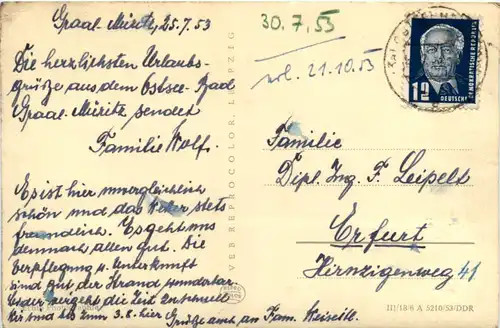 Graal-Müritz, 25.7.53
Die herzlichsten Urlaubs-
grüße aus dem Ostsee-Bad
Graal-Müritz sendet
Familie Wolf.
Es ist hier unvergleichlich
schön und das Wetter stets
freundlich. Es geht uns
demnach allen gut. Die
Verpflegung u. Unterkunft
sind gut der Strand wunderbar.
Leider vergeht die Zeit zu schnell
Wir sind bis zum 3.8. hier
Grüße auch an Fam.
30.7.53
21.10.53
VEB REPROCOLOR, LEIPZIG
12
DEUTSCHE
DEMOKRATISCHE REPUBLIK
Familie
Dipl. Ing. F. Leipelt
Erfurt
Hirnzigenweg 41
III/18/6 A 5210/53/DDR